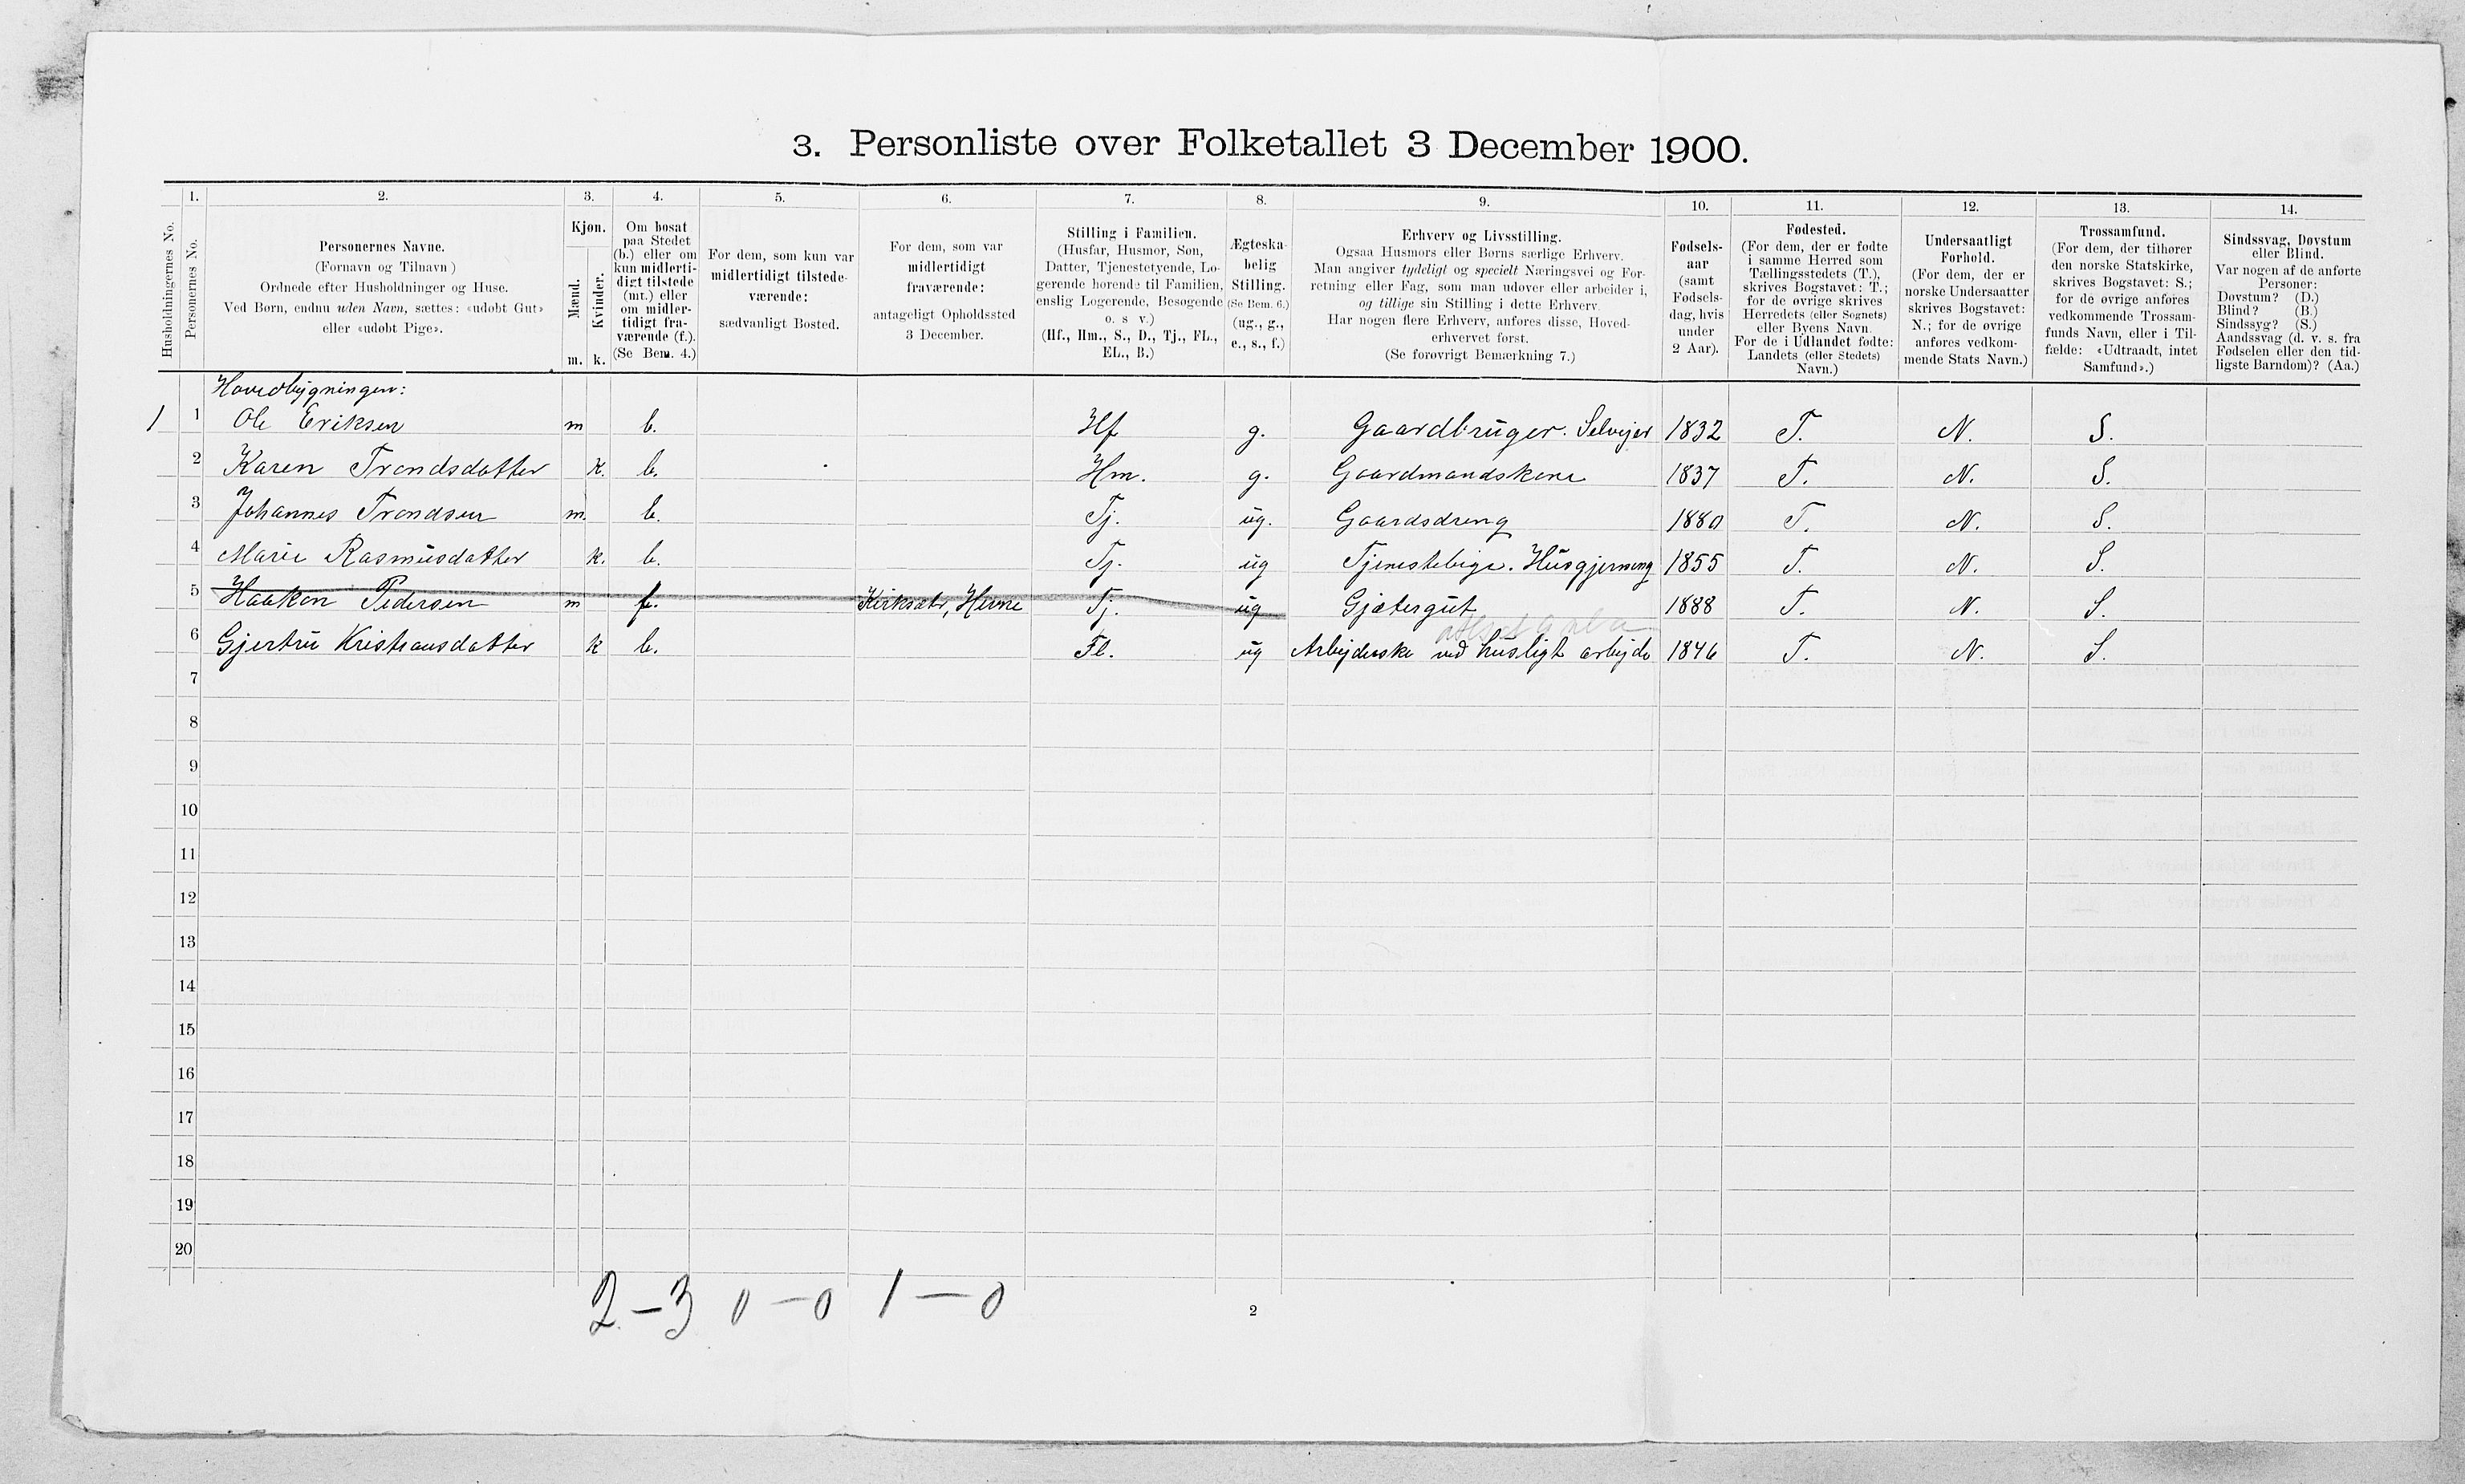 3. Personliste over Folketallet 3 December 1900.
Husholdningernes No.
1.
Personernes No.
2.
Personernes Navne.
(Fornavn og Tilnavn )
Ordnede efter Husholdninger og Huse.
Ved Børn, endnu uden Navn, sættes: «udøbt Gut»
eller «udøbt Pige».
3.
Kjøn.
Mænd.
m.
Kvinder.
k.
4.
Om bosat
paa Stedet
(b.) eller om
kun midlerti-
digt tilstede
(mt.) eller
om midler-
tidigt fra-
værende (f.).
(Se Bem. 4.)
5.
For dem, som kun var
midlertidigt tilstede-
værende:
sædvanligt Bosted.
6.
For dem, som var
midlertidigt
fraværende:
antageligt Opholdssted
3 December.
7.
Stilling i Familien.
(Husfar, Husmor, Søn,
Datter, Tjenestetyende, Lo-
gerende hørende til Familien,
enslig Logerende, Besøgende
o. s v.)
(Hf., Hm., S., D., Tj., FL.,
EL., B.)
8.
Ægteska-
belig
Stilling.
(Se Bem. 6.)
(ug., g.,
e., s., f.)
9.
Erhverv og Livsstilling.
Ogsaa Husmors eller Børns særlige Erhverv.
Man angiver tydeligt og specielt Næringsvei og For-
retning eller Fag, som man udøver eller arbeider i,
og tillige sin Stilling i dette Erhverv.
Har nogen flere Erhverv, anføres disse, Hoved-
erhvervet først.
(Se forøvrigt Bemærkning 7.)
10.
Fødsels-
aar
(samt
Fødsels-
dag, hvis
under
2 Aar).
11.
Fødested.
(For dem, der er fødte
i samme Herred som
Tællingsstedets (T.),
skrives Bogstavet: T.;
for de øvrige skrives
Herredets (eller Sognets)
eller Byens Navn.
For de i Udlandet fødte:
Landets (eller Stedets)
Navn.)
12.
Undersaatligt
Forhold.
(For dem, der er
norske Undersaatter
skrives Bogstavet:
N.; for de øvrige
anføres vedkom-
mende Stats Navn.)
13.
Trossamfund.
(For dem, der tilhører
den norske Statskirke,
skrives Bogstavet: S.;
for de øvrige anføres
vedkommende Trossam-
funds Navn, eller i Til-
fælde: «Udtraadt, intet
Samfund».)
14.
Sindssvag, Døvstum
eller Blind.
Var nogen af de anførte
Personer:
Døvstum? (D.)
Blind? (B.)
Sindssyg? (S.)
Aandssvag (d. v. s. fra
Fødselen eller den tid-
ligste Barndom)? (Aa.)
Hovedbygningen:
1 1 Ole Eriksen m b. Hf g. Gaardbruger. Selveier 1832 T. N. S.
2 Karen Trondsdatter k. b. Hm. g. Gaardmandskone 1837 T. N. S.
3 Johannes Trondsen m. b. Tj. ug. Gaardsdreng 1880 T. N. S.
4 Marie Rasmusdatter k. b. Tj. ug Tjenestepige. Husgjerning 1855 T. N. S.
5 Haakon Pedersen m f. Kirksæter, Hevne Tj. ug Gjætergut 1888 T. N. S.
6 Gjertru Kristiansdatter k b. Fl. ug Arbejderske ved husligt arbejde 1846 T. N. S.
7
8
9
10
11
12
13
14
15
16
17
18
19
20
2-3 0-0 1-0
2